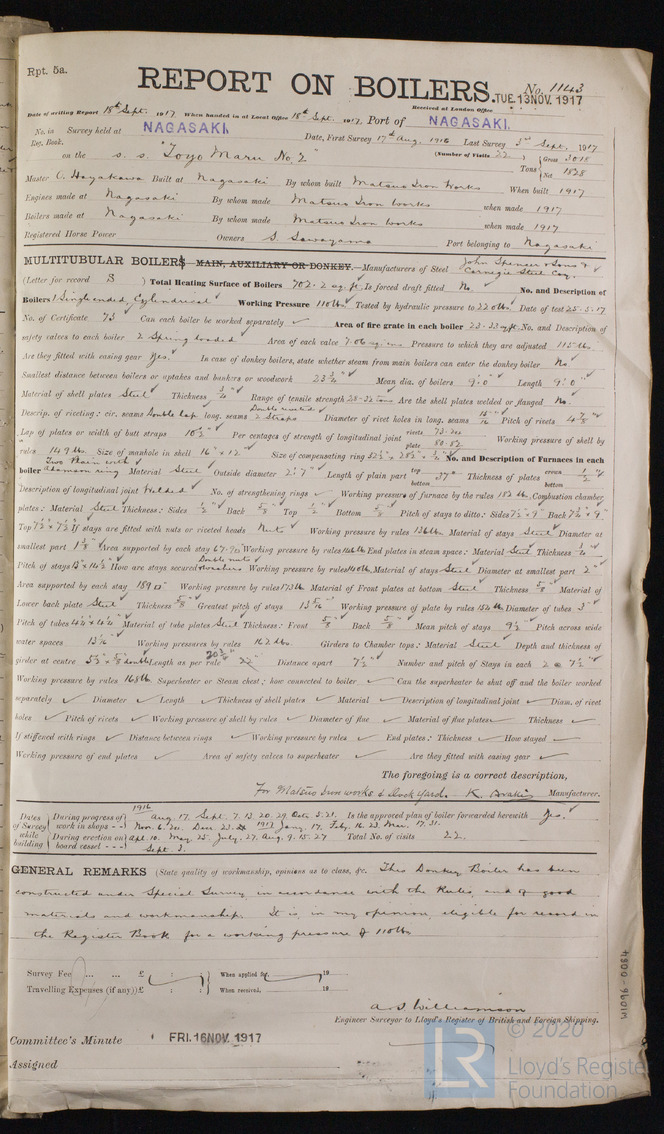 Rpt. 5a.
REPORT ON BOILERS.
No. 1143
TUE. 13 NOV. 1917
Received at London Office
Date of writing Report 18th Sept. 1917 When handed in at Local Office 18th Sept. 1917 Port of NAGASAKI.
No. in Reg. Book. Survey held at NAGASAKI. Date, First Survey 17th Aug. 1916 Last Survey 3rd Sept. 1917
on the s. s. "Toyo Maru No. 2" (Number of Visits 22) Tons { Gross 3018 Net 1828
Master C. Hayakawa Built at Nagasaki By whom built Matsuo Iron Works When built 1917
Engines made at Nagasaki By whom made Matsuo Iron Works when made 1917
Boilers made at Nagasaki By whom made Matsuo Iron Works when made 1917
Registered Horse Power Owners S. Sawayama Port belonging to Nagasaki
MULTITUBULAR BOILERS MAIN, AUXILIARY OR DONKEY.—Manufacturers of Steel John Spencer & Sons & Carnegie Steel Coy.
(Letter for record S) Total Heating Surface of Boilers 702.2 sq. ft. Is forced draft fitted No. No. and Description of
Boilers 1 Single ended, Cylindrical Working Pressure 110 lbs Tested by hydraulic pressure to 220 lbs. Date of test 25.5.17
No. of Certificate 73 Can each boiler be worked separately ✓ Area of fire grate in each boiler 23.33 sq. ft. No. and Description of
safety valves to each boiler 2 Spring loaded Area of each valve 7.06 sq. ins Pressure to which they are adjusted 115 lbs.
Are they fitted with easing gear Yes. In case of donkey boilers, state whether steam from main boilers can enter the donkey boiler No
Smallest distance between boilers or uptakes and bunkers or woodwork 23¼" Mean dia. of boilers 9'.0" Length 9'.0"
Material of shell plates Steel Thickness ¾" Range of tensile strength 28-32 tons Are the shell plates welded or flanged No.
Descrip. of riveting: cir. seams Double lap long. seams Double riveted 2 Straps Diameter of rivet holes in long. seams 15/16" Pitch of rivets 4⅞"
Lap of plates or width of butt straps 10½" Per centages of strength of longitudinal joint rivets plate 80.82 Working pressure of shell by
rules 149 lbs. Size of manhole in shell 16" × 12" Size of compensating ring No. and Description of Furnaces in each
boiler Two Plain with Adamson ring Material Steel Outside diameter 2'.7" Length of plain part top bottom 37" Thickness of plates crown bottom ½"
Description of longitudinal joint Welded No. of strengthening rings ✓ Working pressure of furnace by the rules 182 lb. Combustion chamber
plates: Material Steel Thickness: Sides ½" Back ⅝" Top ½" Bottom ⅝" Pitch of stays to ditto: Sides 7½" × 9" Back 7½" × 9"
Top 7½" × 7½" If stays are fitted with nuts or riveted heads Nuts Working pressure by rules 136 lb. Material of stays Steel Diameter at
smallest part 1⅜" Area supported by each stay 67.5 Working pressure by rules End plates in steam space: Material Steel Thickness ¾"
Pitch of stays How are stays secured Double nuts & washers Working pressure by rules 140 lb. Material of stays Steel Diameter at smallest part 2"
Area supported by each stay 189 Working pressure by rules 173 lb Material of Front plates at bottom Steel Thickness ⅝" Material of
Lower back plate Steel Thickness ⅝" Greatest pitch of stays 13 5/16" Working pressure of plate by rules 184 lb. Diameter of tubes 3"
Pitch of tubes 4¼" × 4¼" Material of tube plates Steel Thickness: Front ⅝" Back ⅝" Mean pitch of stays 9½" Pitch across wide
water spaces 13¼" Working pressures by rules 162 lbs. Girders to Chamber tops: Material Steel Depth and thickness of
girder at centre 5½" × ⅝" double Length as per rule 20¾" 22" Distance apart 7½" Number and pitch of Stays in each 2 @ 7½"
Working pressure by rules 168 lb. Superheater or Steam chest; how connected to boiler ✓ Can the superheater be shut off and the boiler worked
separately ✓ Diameter ✓ Length ✓ Thickness of shell plates ✓ Material ✓ Description of longitudinal joint ✓ Diam. of rivet
holes ✓ Pitch of rivets ✓ Working pressure of shell by rules ✓ Diameter of flue ✓ Material of flue plates ✓ Thickness ✓
If stiffened with rings ✓ Distance between rings ✓ Working pressure by rules ✓ End plates: Thickness ✓ How stayed ✓
Working pressure of end plates ✓ Area of safety valves to superheater ✓ Are they fitted with easing gear ✓
The foregoing is a correct description,
For Matsuo Iron works & Dockyard. K. Araki Manufacturer.
Dates of Survey while building
During progress of work in shops - - 1916 Aug. 17. Sept. 7. 13. 20. 29. Oct. 5. 21. Nov. 6. 20. Dec. 23. 1917 Jany. 17. Feby. 16. 23. Mar. 17. 31. Is the approved plan of boiler forwarded herewith Yes.
During erection on board vessel - - - Apl. 10. May. 25. July. 27. Aug. 9. 15. 27 Sept. 3. Total No. of visits 22.
GENERAL REMARKS (State quality of workmanship, opinions as to class, &c. This Donkey Boiler has been
constructed under Special Survey in accordance with the Rules, and of good
materials and workmanship. It is, in my opinion, eligible for record in
the Register Book for a working pressure of 110 lbs
Survey Fee ... ... £ : : When applied for, 19
Travelling Expenses (if any) £ : : When received, 19
A. S. Williamson
Engineer Surveyor to Lloyd's Register of British and Foreign Shipping.
Committee's Minute FRI. 16 NOV. 1917
Assigned
W1096-0034
© 2020
LR
Lloyd's Register
Foundation